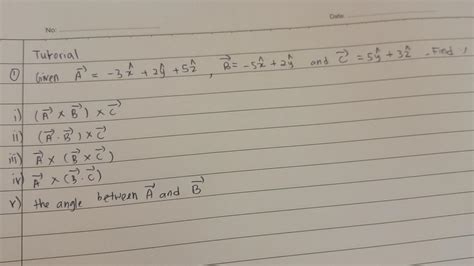 No:
Date:
Tutorial
① Given A⃗ = -3x̂ + 2ŷ + 5ẑ , B⃗ = -5x̂ + 2ŷ and C⃗ = 5ŷ + 3ẑ . Find ;
i) (A⃗ × B⃗) × C⃗
ii) (A⃗ . B⃗) × C⃗
iii) A⃗ × (B⃗ × C⃗)
iv) A⃗ × (B⃗ . C⃗)
v) the angle between A⃗ and B⃗